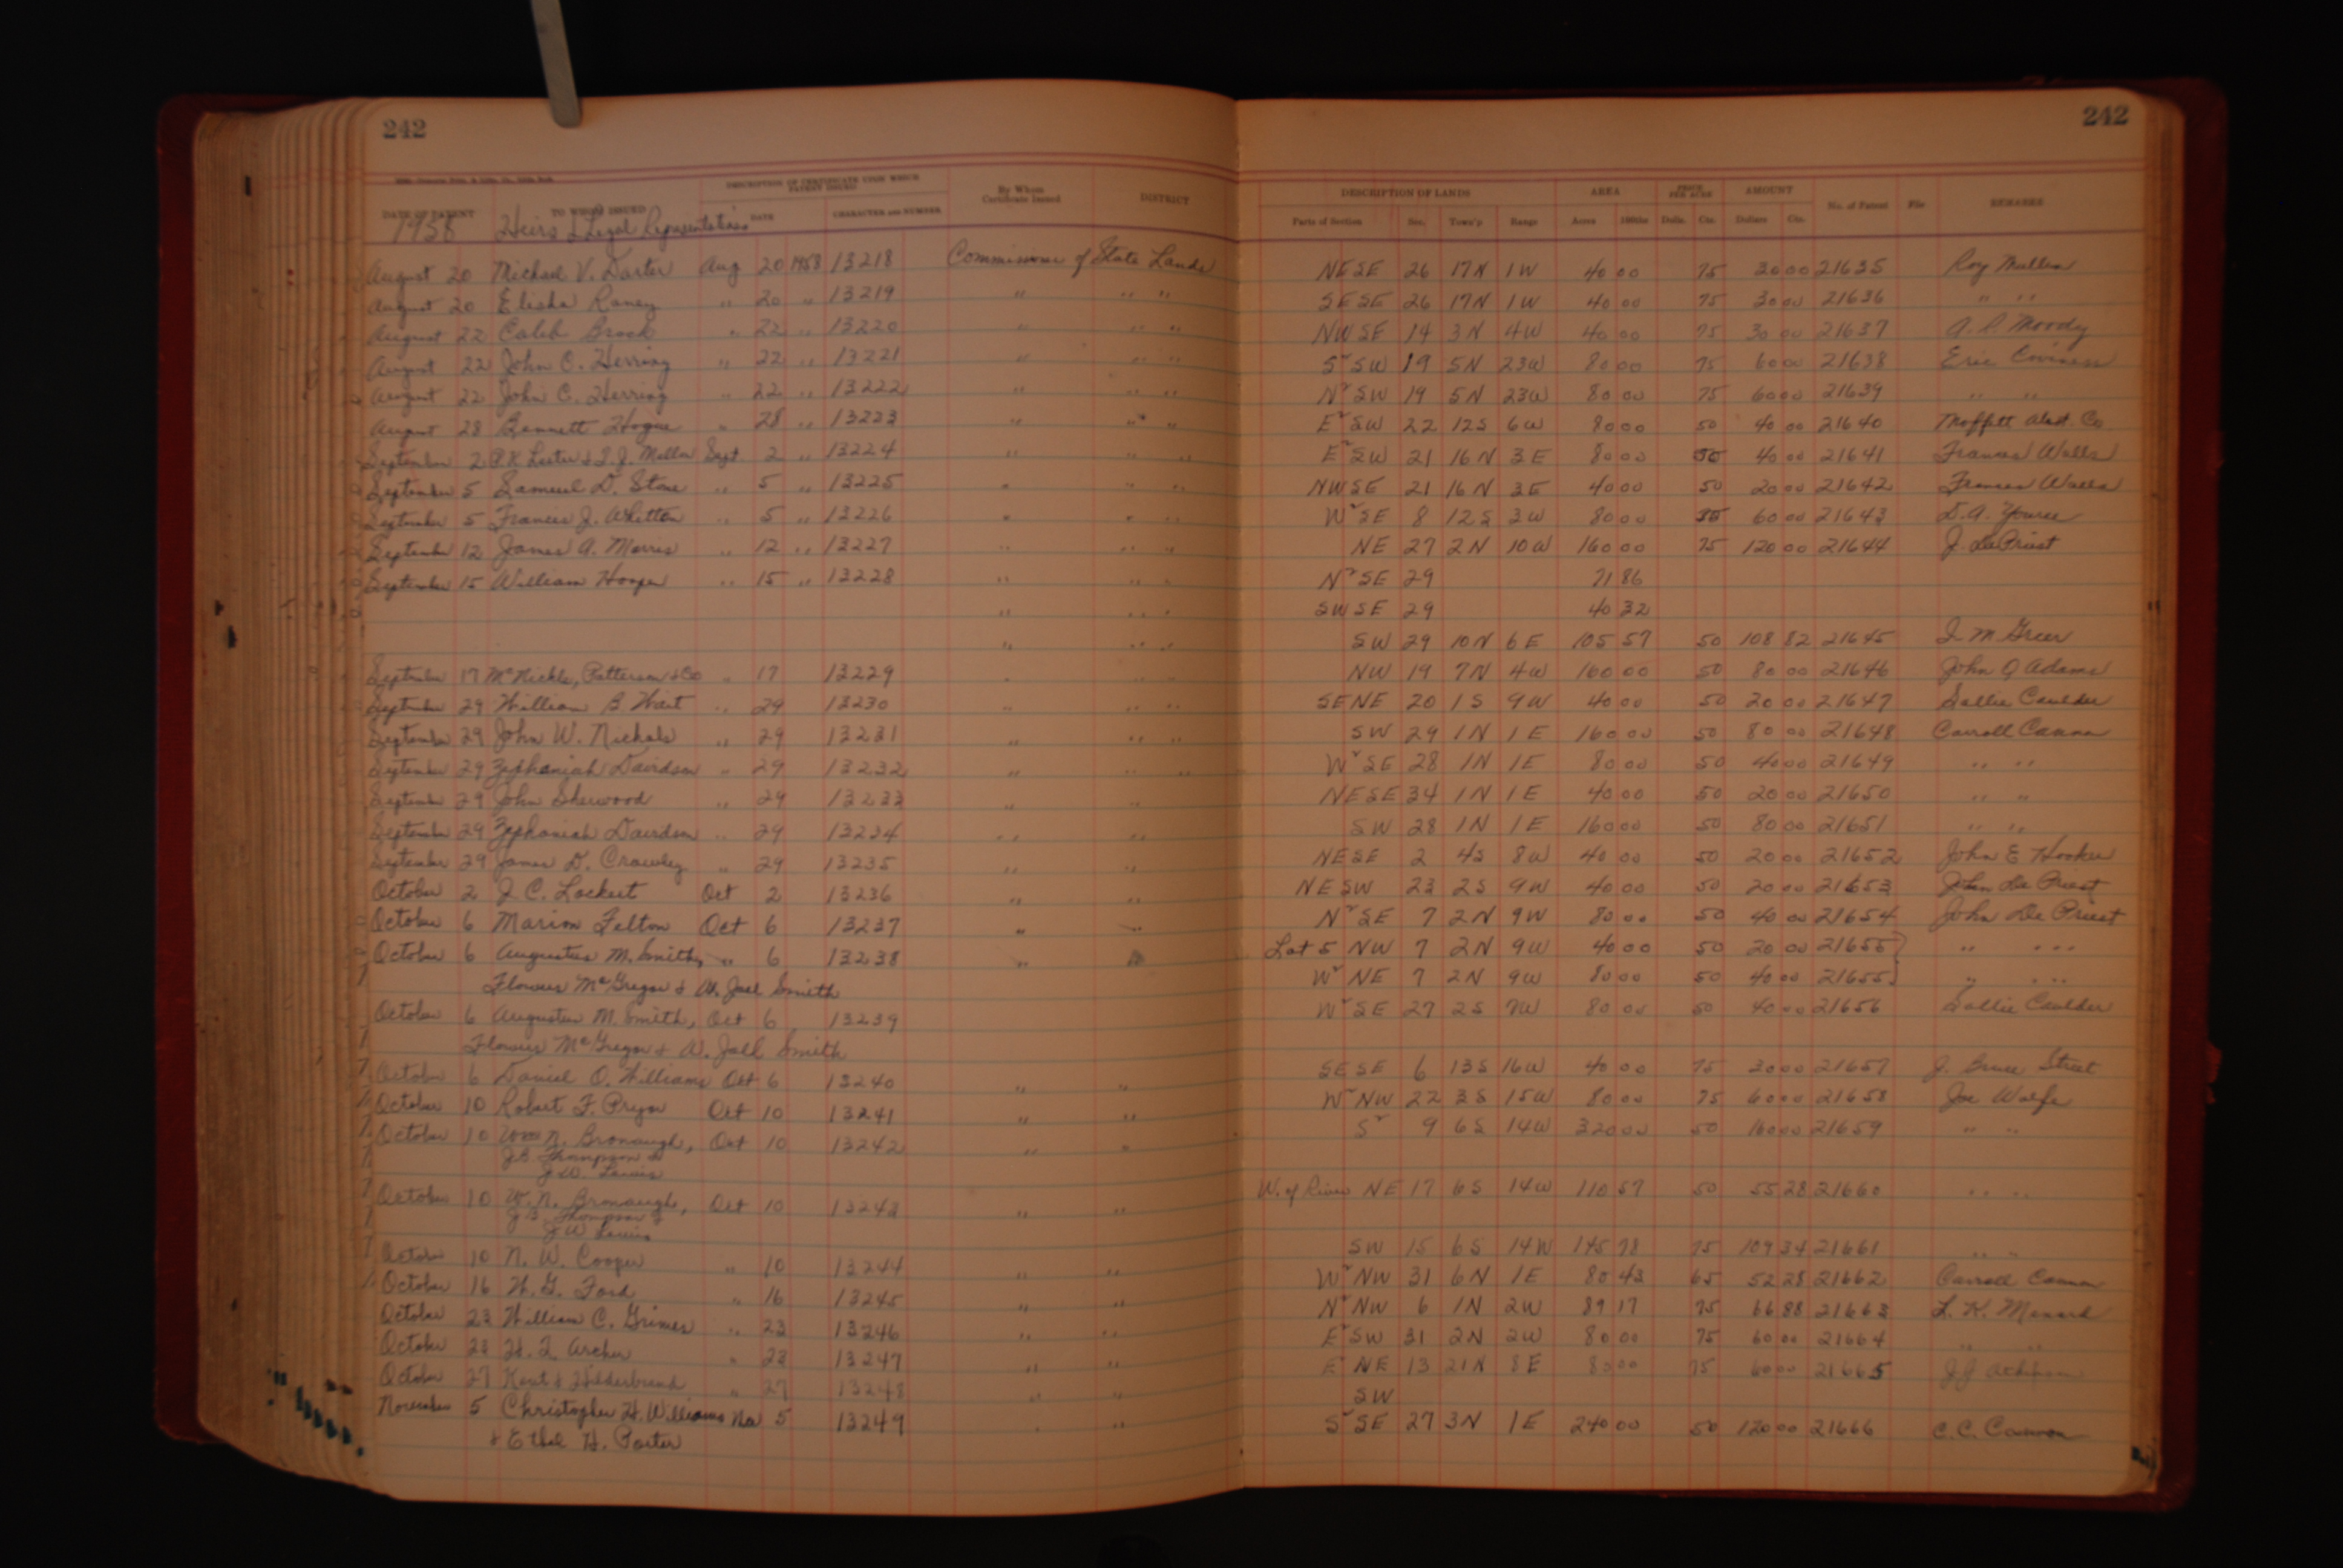 242 242
DESCRIPTION OF CERTIFICATE UPON WHICH PATENT ISSUED By Whom Certificate Issued DISTRICT DESCRIPTION OF LANDS AREA PRICE PER ACRE AMOUNT No. of Patent File REMARKS
DATE OF PATENT TO WHOM ISSUED DATE CHARACTER AND NUMBER Parts of Section Sec. Town'p Range Acres 100ths Dolls. Cts. Dollars Cts.
1958 Heirs & Legal Representatives
August 20 Michael V. Darter Aug 20 1958 13218 Commissioner of State Lands NE SE 26 17N 1W 40 00 75 30 00 21635 Roy Mullen
August 20 Elisha Raney " 20 " 13219 " " " SE SE 26 17N 1W 40 00 75 30 00 21636 " "
August 22 Caleb Brock " 22 " 13220 " " " NW SE 14 3N 4W 40 00 75 30 00 21637 Moody
August 22 John C. Herring " 22 " 13221 " " " S² SW 19 5N 23W 80 00 75 60 00 21638 Eric
August 22 John C. Herring " 22 " 13222 " " " N² SW 19 5N 23W 80 00 75 60 00 21639 " "
August 28 Bennett Hogue " 28 " 13223 " " " E² SW 22 12S 6W 80 00 50 40 00 21640 Moffett Abst. Co
September 2 Lester & Sept. 2 " 13224 " " " E² SW 21 16N 3E 80 00 50 40 00 21641 Frances Walls
September 5 Samuel D. Stone " 5 " 13225 " " " NW SE 21 16N 3E 40 00 50 20 00 21642 Frances Walls
September 5 Francis J. Whitten " 5 " 13226 " " " W² SE 8 12S 3W 80 00 75 60 00 21643 D. A. Youree
September 12 James A. Morris " 12 " 13227 " " " NE 27 2N 10W 160 00 75 120 00 21644 J. DePriest
September 15 William Hooper " 15 " 13228 " " " N² SE 29 71 86
" " " SW SE 29 40 32
" " " SW 29 10N 6E 105 57 50 108 82 21645 M. Greer
September 17 McNickle, Patterson & Co " 17 13229 " " " NW 19 7N 4W 160 00 50 80 00 21646 John Q Adams
September 29 William B. Wait " 29 13230 " " " SE NE 20 1S 9W 40 00 50 20 00 21647 Sallie Caulder
September 29 John W. Nichols " 29 13231 " " " SW 29 1N 1E 160 00 50 80 00 21648 Carroll Cannon
September 29 Zephaniah Davidson " 29 13232 " " " W² SE 28 1N 1E 80 00 50 40 00 21649 " "
September 29 John Sherwood " 29 13233 " " NE SE 34 1N 1E 40 00 50 20 00 21650 " "
September 29 Zephaniah Davidson " 29 13234 " " SW 28 1N 1E 160 00 50 80 00 21651 " "
September 29 James D. Crawley " 29 13235 " " NE SE 2 4S 8W 40 00 50 20 00 21652 John E Hooker
October 2 J. C. Lockert Oct 2 13236 " " NE SW 23 2S 9W 40 00 50 20 00 21653 John De Priest
October 6 Marion Felton Oct 6 13237 " " N² SE 7 2N 9W 80 00 50 40 00 21654 John De Priest
October 6 Augustus M. Smith, " 6 13238 " Lot 5 NW 7 2N 9W 40 00 50 20 00 21655 " "
Flowers McGregor & W. Jall Smith W² NE 7 2N 9W 80 00 50 40 00 21655 " "
October 6 Augustus M. Smith, Oct 6 13239 W² SE 27 2S 7W 80 00 50 40 00 21656 Sallie Caulder
Flowers McGregor & W. Jall Smith
October 6 Daniel O. Williams Oct 6 13240 " " SE SE 6 13S 16W 40 00 75 30 00 21657 J. Bruce Street
October 10 Robert F. Pryor Oct 10 13241 " " W² NW 22 3S 15W 80 00 75 60 00 21658 Joe Wolfe
October 10 Wm N. Bronaugh, Oct 10 13242 " " S² 9 6S 14W 320 00 50 160 00 21659 " "
J B Thompson &
J. W. Lewis
October 10 W. N. Bronaugh, Oct 10 13243 " " W. of River NE 17 6S 14W 110 57 50 55 28 21660 " "
J B Thompson &
J W Lewis
October 10 N. W. Cooper " 10 13244 " " SW 15 6S 14W 145 78 75 109 34 21661 " "
October 16 W. G. Ford " 16 13245 " " W² NW 31 6N 1E 80 43 65 52 28 21662 Carroll Cannon
October 23 William C. Grimes " 23 13246 " " N² NW 6 1N 2W 89 17 75 66 88 21663 L. K. Menard
October 23 Archer " 23 13247 " " E² SW 31 2N 2W 80 00 75 60 00 21664 " "
October 27 Kent & Hilderbrand " 27 13248 " " E² NE 13 21N 8E 80 00 75 60 00 21665
SW
November 5 Christopher H. Williams Nov 5 13249 " " S² SE 27 3N 1E 240 00 50 120 00 21666 C. C. Cannon
& Ethel H. Porter